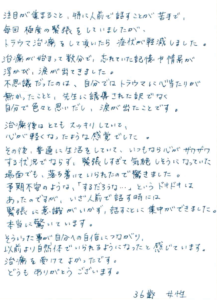 注目が集まること、特に人前で話すことが苦手で、
毎回極度の緊張をしていましたが、
トラウマ治療をして頂いたら症状が軽減しました。
治療が始まって数分で、忘れていた記憶や情景が
浮かび、涙が出てきました。
不思議だったのは、自分ではトラウマに心当たりが
無かったことと、先生に誘導された訳でなく
自分で色々と思いだし、涙が出たことです。
治療後はとてもスッキリしていて、
心が軽くなったような感覚でした。
その後、普通に生活をしていて、いつもなら心がザワザワ
する状況でならず、緊張しすぎて気絶しそうになっていた
場面でも、落ち着いていられたので驚きました。
予期不安のような、「するだろうな…」というドキドキは
あったのですが、いざ人前で話す時には
緊張に意識がいかず、話すことに集中ができました。
本当に驚いています。
そういった事が自分の自信につながり、
以前より自然体でいられるようになったと感じています。
治療を受けてよかったです。
どうもありがとうございます。
36歳 女性